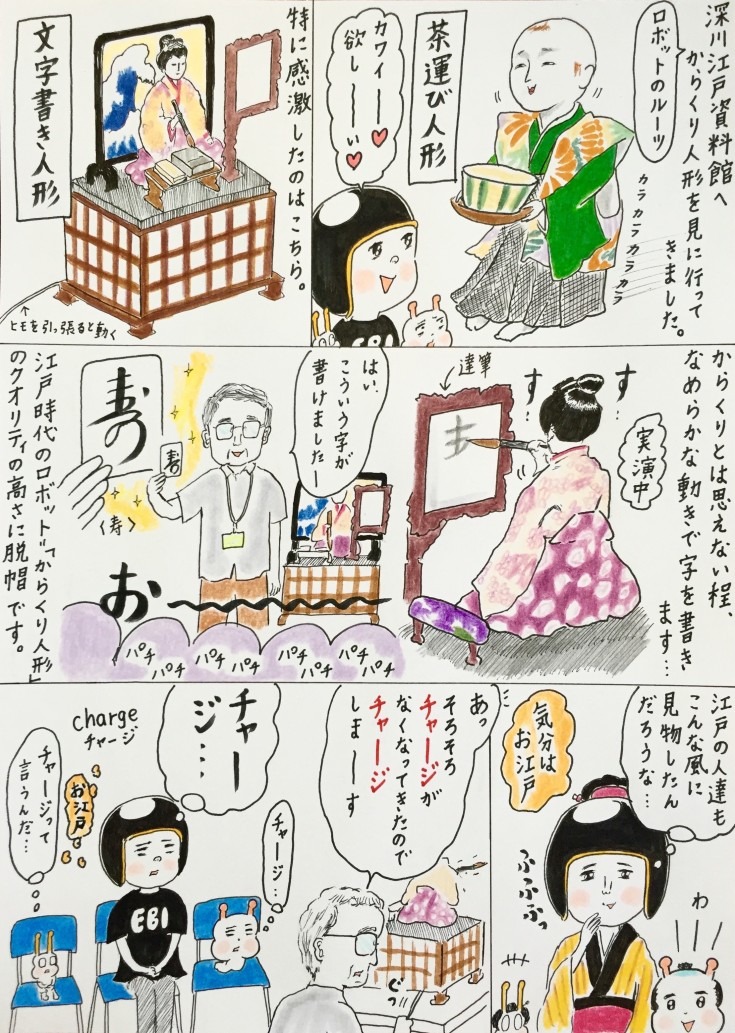 深川江戸資料館へ
からくり人形を見に行って
きました。
ロボットのルーツ
カラカラカラカラ
茶運び人形
カワイーー♥
欲しーーい♥
EBI
特に感激したのはこちら。
文字書き人形
↑
ヒモを引っ張ると動く
からくりとは思えない程、
なめらかな動きで字を書き
ます…
実演中
す…
す…
達筆
はい、
こういう字が
書けましたー
寿
寿
〈寿〉
お
パチパチ
パチパチ
パチパチ
パチパチ
江戸時代のロボット「からくり人形」
のクオリティの高さに脱帽です。
江戸の人達も
こんな風に
見物したん
だろうな…
気分は
お江戸
ふふふっ
わ
あっ
そろそろ
チャージが
なくなってきたので
チャージ
しまーーす
ぐっ
チャー
ジ…
チャージ…
charge
チャージ
お江戸
チャージって
言うんだ…
EBI